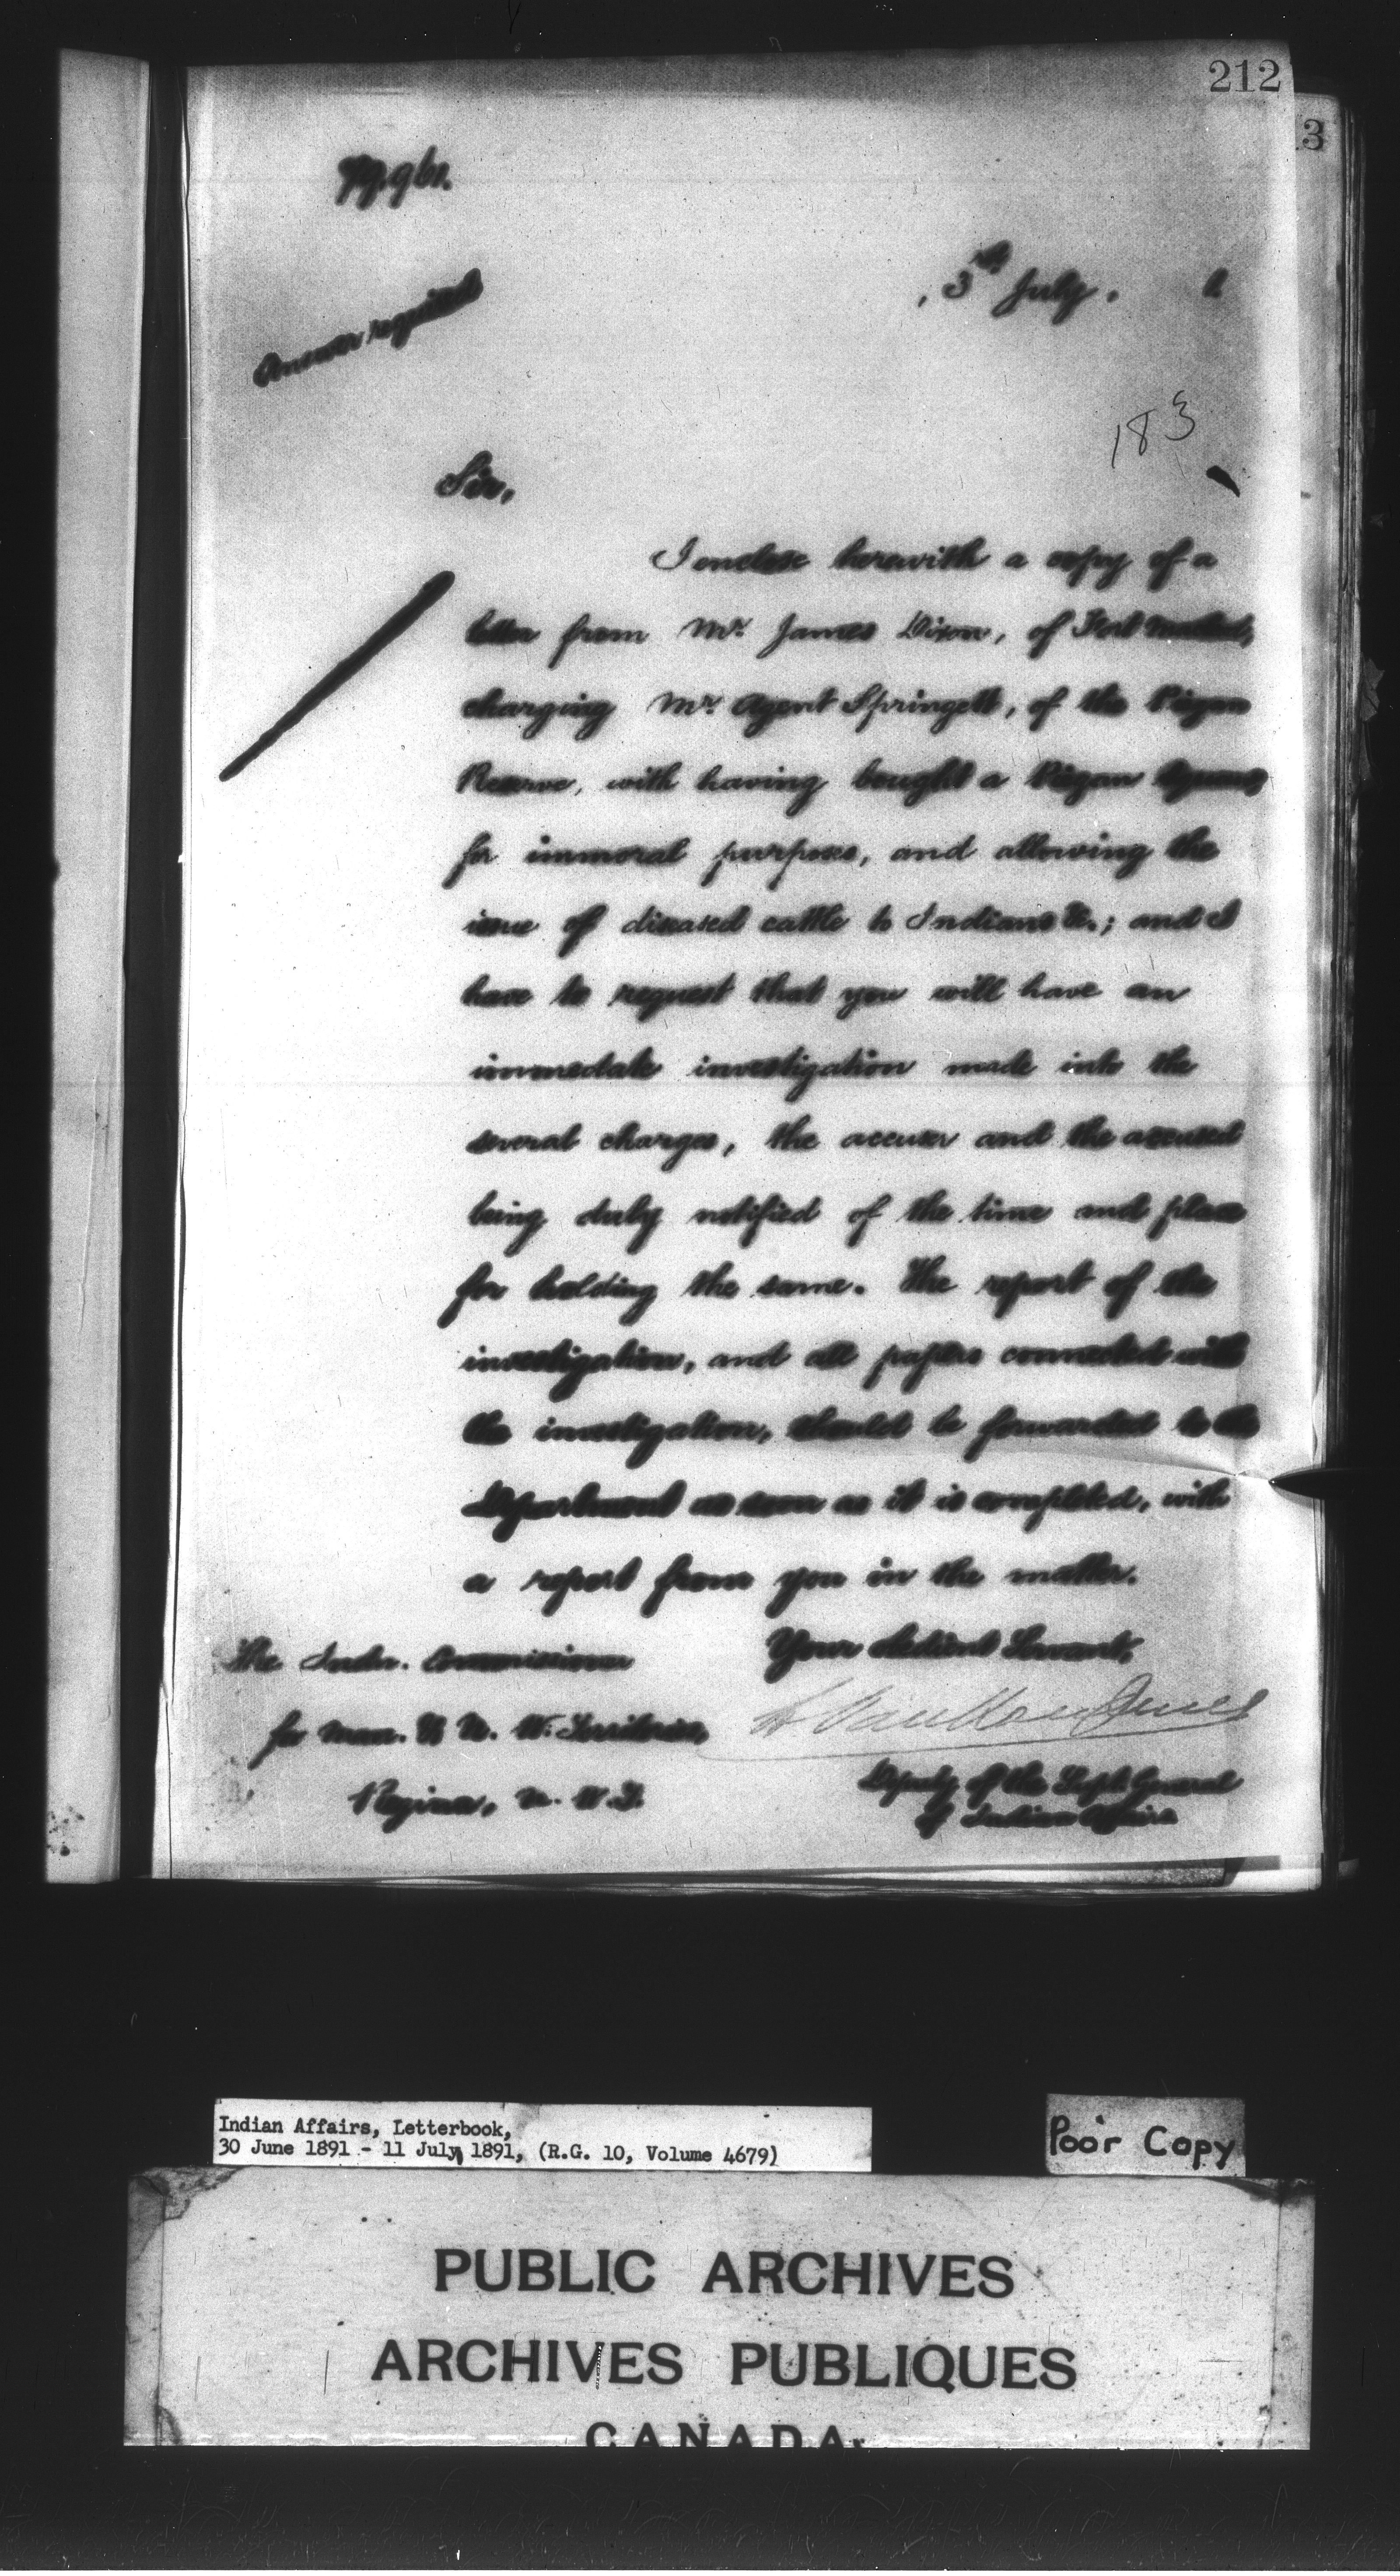 212
3
Answer required
3rd July. 1
183
Sir,
I enclose herewith a copy of a
letter from Mr. James Dixon, of Fort
charging Mr. Agent Springett, of the Piegan
Reserve, with having bought a Piegan
for immoral purposes, and allowing the
issue of diseased cattle to Indians &c.; and I
have to request that you will have an
immediate investigation made into the
several charges, the accuser and the accused
being duly notified of the time and place
for holding the same. The report of the
investigation, and all papers connected with
the investigation, should be forwarded to the
Department as soon as it is completed, with
a report from you in the matter.
Your obedient Servant,
The Indn. Commissioner
for Man. & N. W. Territories,
Regina, N. W. T.
Deputy of the Supt. General
of Indian Affairs
Indian Affairs, Letterbook,
30 June 1891 - 11 July 1891, (R.G. 10, Volume 4679)
Poor Copy
PUBLIC ARCHIVES
ARCHIVES PUBLIQUES
CANADA